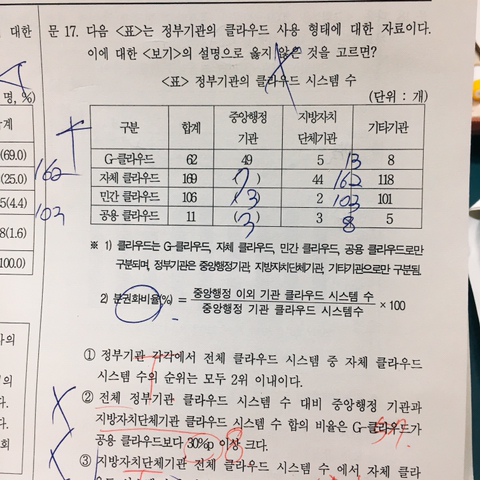 대한
명, %)
합계
(69.0)
(25.0)
5(4.4)
8(1.6)
100.0)
문 17. 다음 <표>는 정부기관의 클라우드 사용 형태에 대한 자료이다.
이에 대한 <보기>의 설명으로 옳지 않은 것을 고르면?
<표> 정부기관의 클라우드 시스템 수
(단위 : 개)
구분 합계 중앙행정기관 지방자치단체기관 기타기관
G-클라우드 62 49 5 13 8
162 자체 클라우드 169 ( 7 ) 44 162 118
103 민간 클라우드 106 3 2 103 101
공용 클라우드 11 ( 3 ) 3 8 5
※ 1) 클라우드는 G-클라우드, 자체 클라우드, 민간 클라우드, 공용 클라우드로만
구분되며, 정부기관은 중앙행정기관, 지방자치단체기관, 기타기관으로만 구분됨.
2) 분권화비율(%) = 중앙행정 이외 기관 클라우드 시스템 수 / 중앙행정 기관 클라우드 시스템수 × 100
① 정부기관 각각에서 전체 클라우드 시스템 중 자체 클라우드
시스템 수의 순위는 모두 2위 이내이다.
② 전체 정부기관 클라우드 시스템 수 대비 중앙행정 기관과
지방자치단체기관 클라우드 시스템 수 합의 비율은 G-클라우드가
공용 클라우드보다 30%p 이상 크다.
③ 지방자치단체기관 전체 클라우드 시스템 수 에서 자체 클라